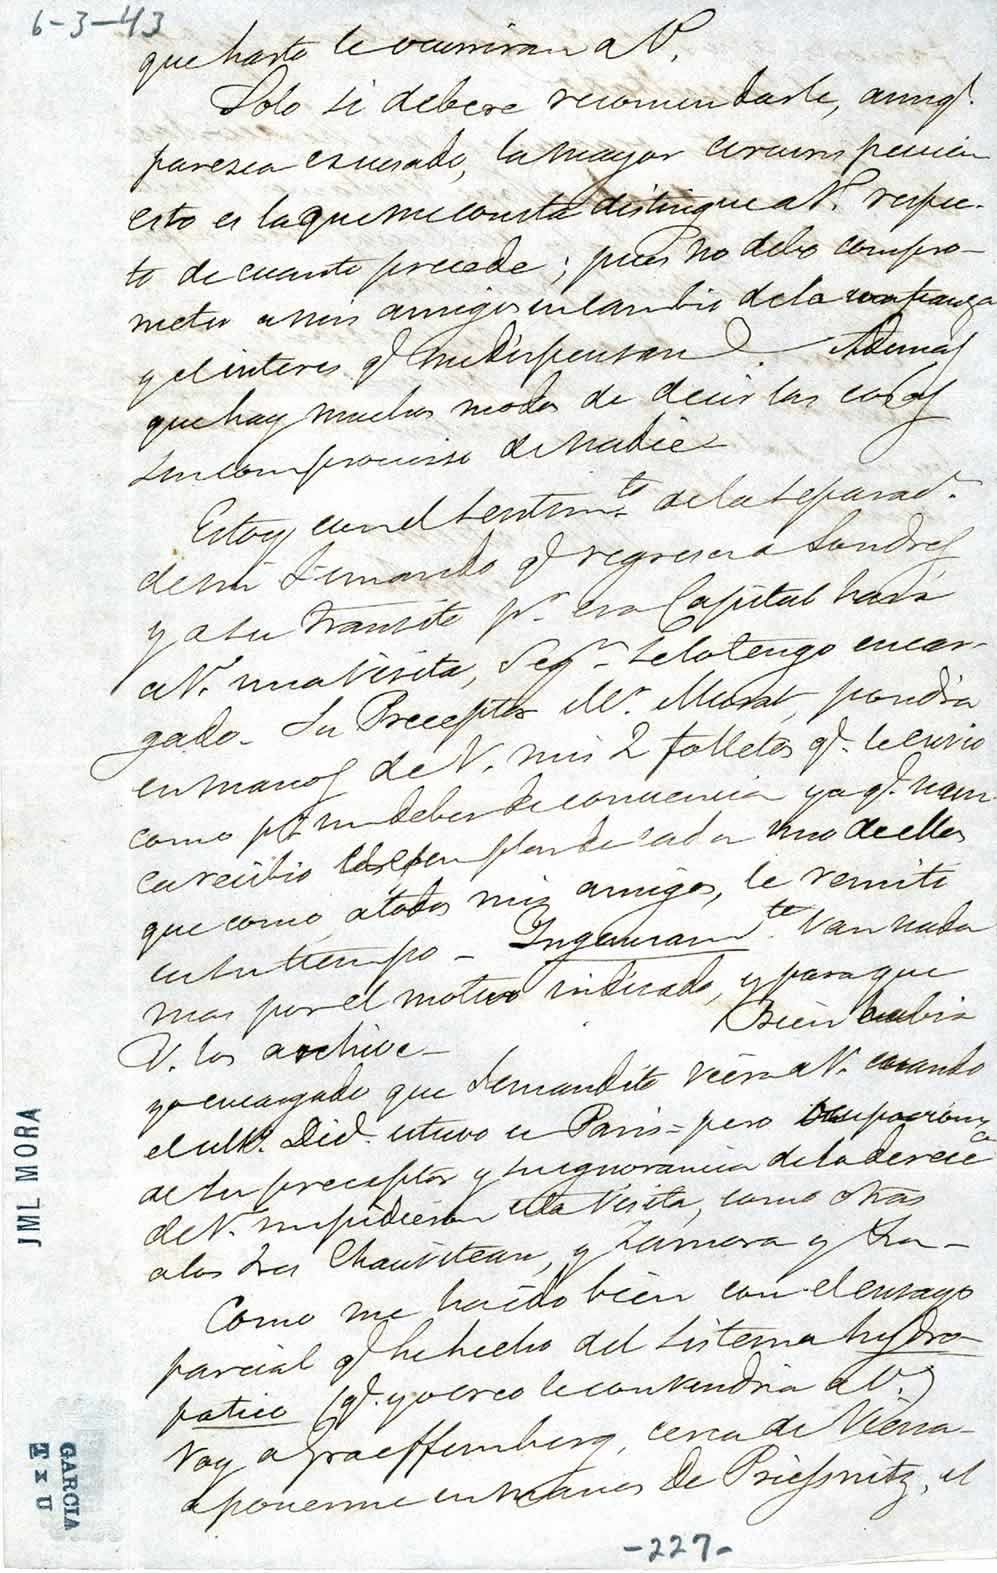 6-3-43
que harto le ocurriran a V.
Solo si debere recomendarle, aunq.
paresca escusado, la mayor circunspeccion
esto es la que me consta distingue a V. respec-
to de cuanto precede; pues no debo compro-
meter a mis amigos en cambio de la confianza
y el interes q. me dispensan. Ademas
que hay muchos modos de decir las cosas
sin compromiso de nadie
Estoy con el sentim.to de la separac.n
de mi Fernando q. regresa a Londres
y a su transito p.r esa Capital hará
a V. una visita, seg.n se lo tengo encar-
gado. Su Preceptor Mr. Murat, pondrá
en manos de V. mis 2 folletos q. le envio
como p.r un deber de conciencia ya q. nun-
ca recibio los ejemplares de cada uno de ellos
que como a todos mis amigos, le remiti
en su tiempo - Ingenuam.te van nada
mas por el motivo indicado, y para que
V. los archive - Bien habia
yo encargado que Fernandito viera a V. cuando
el ult.o Dic.e estuvo en Paris = pero ocupacion.s
de su preceptor y su ignorancia de la direcc.n
de V. impidieron esta visita, como otras
a los Sres Chauviteau, y Zamora y
Como me ha ido bien con el ensayo
parcial q. he hecho del sistema hydro-
patico (q. yo creo le convendria a V.)
Voy a Graeffemberg, cerca de Viena
a ponerme en manos de Priessnitz, el
JML MORA
GARCIA
T x U
-227-